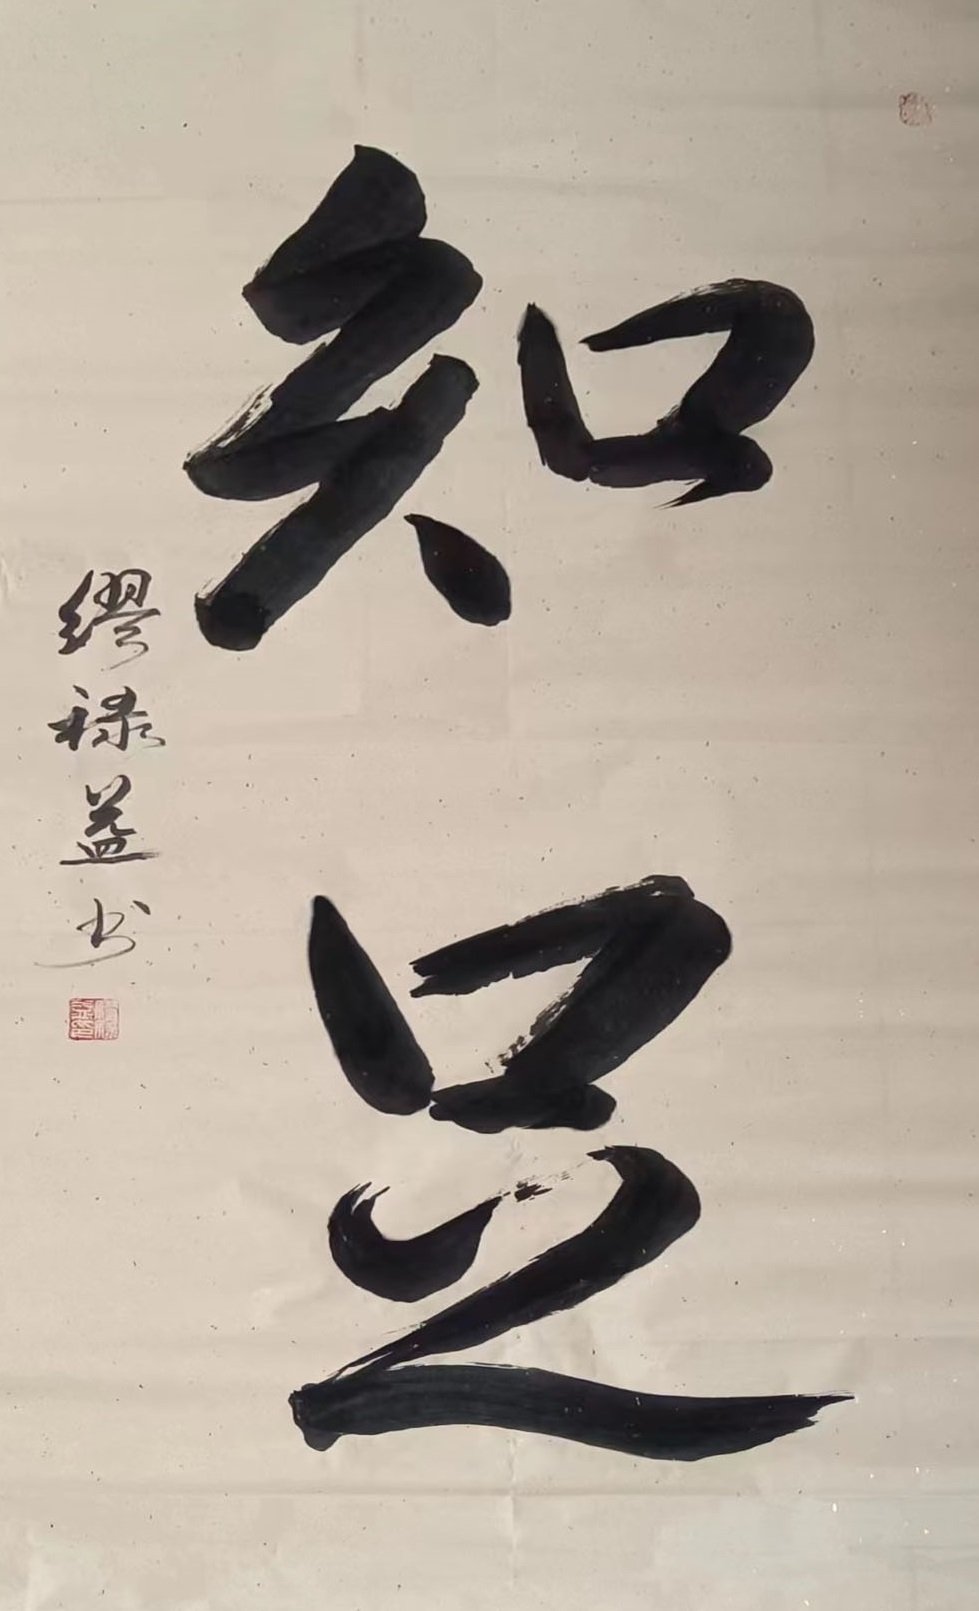 知足
繆禄益书